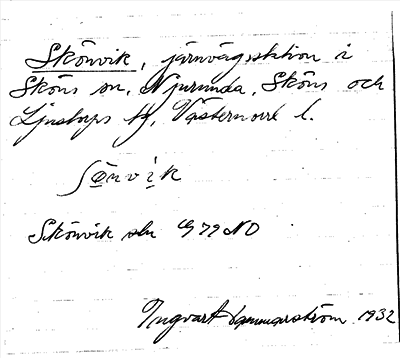 Skönvik, järnvägsstation i
Sköns sn, Njurunda, Sköns och
Ljustorps tg, Västernorrl l.
ʃönvik
Skönvik sln G 79 NO
Ingvart Hammarström 1932